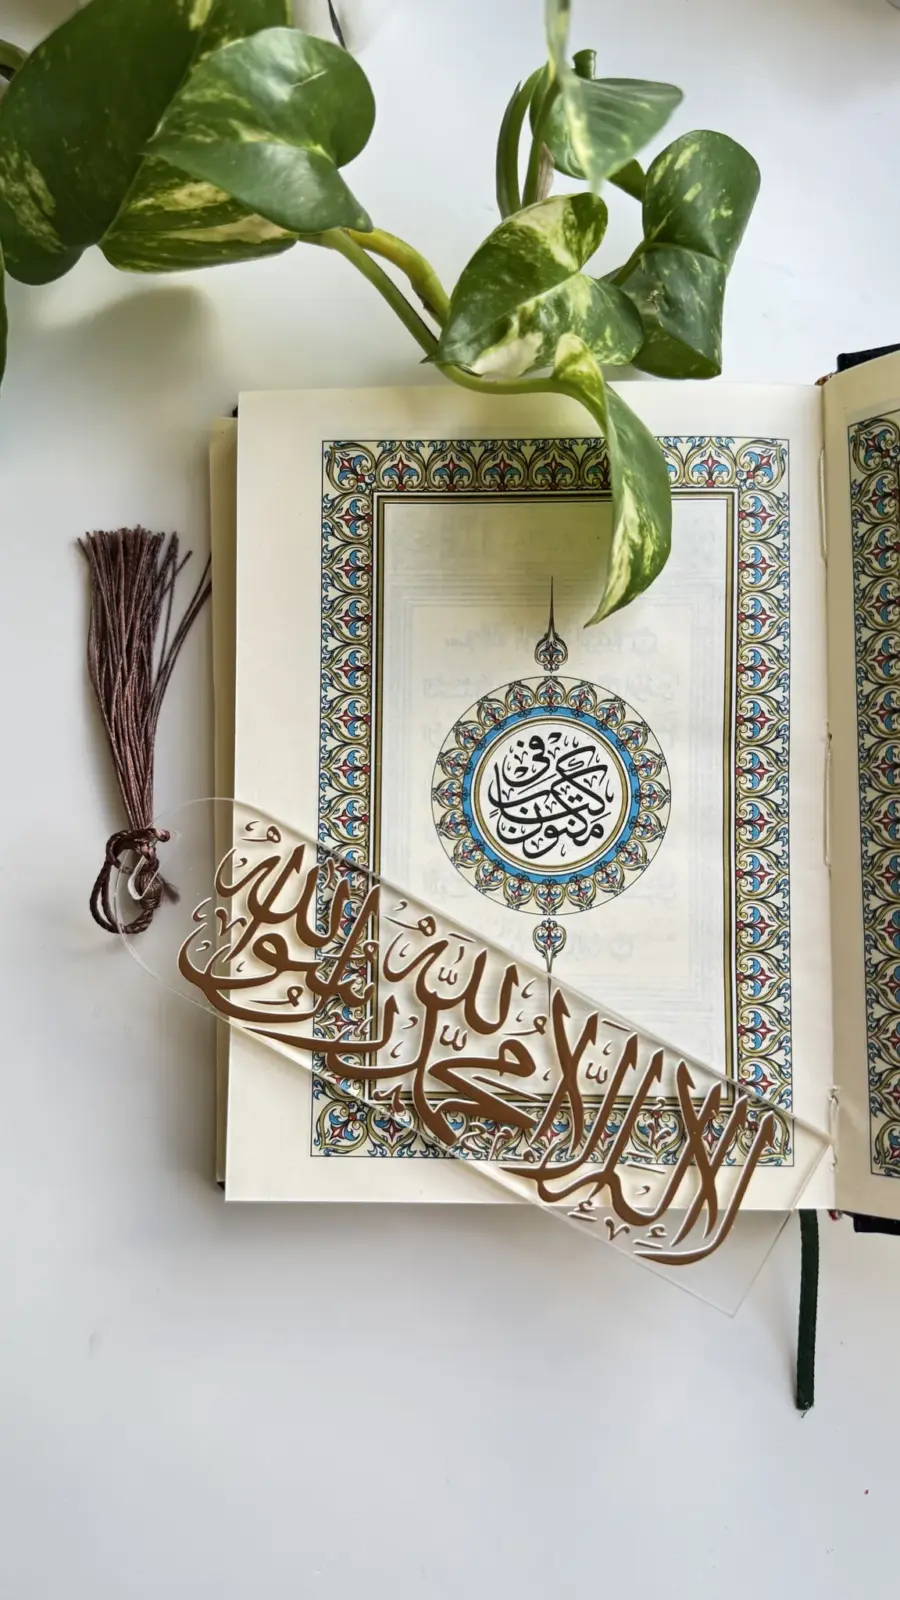 في
كتاب
مكنون
لا إله إلا الله محمد رسول الله